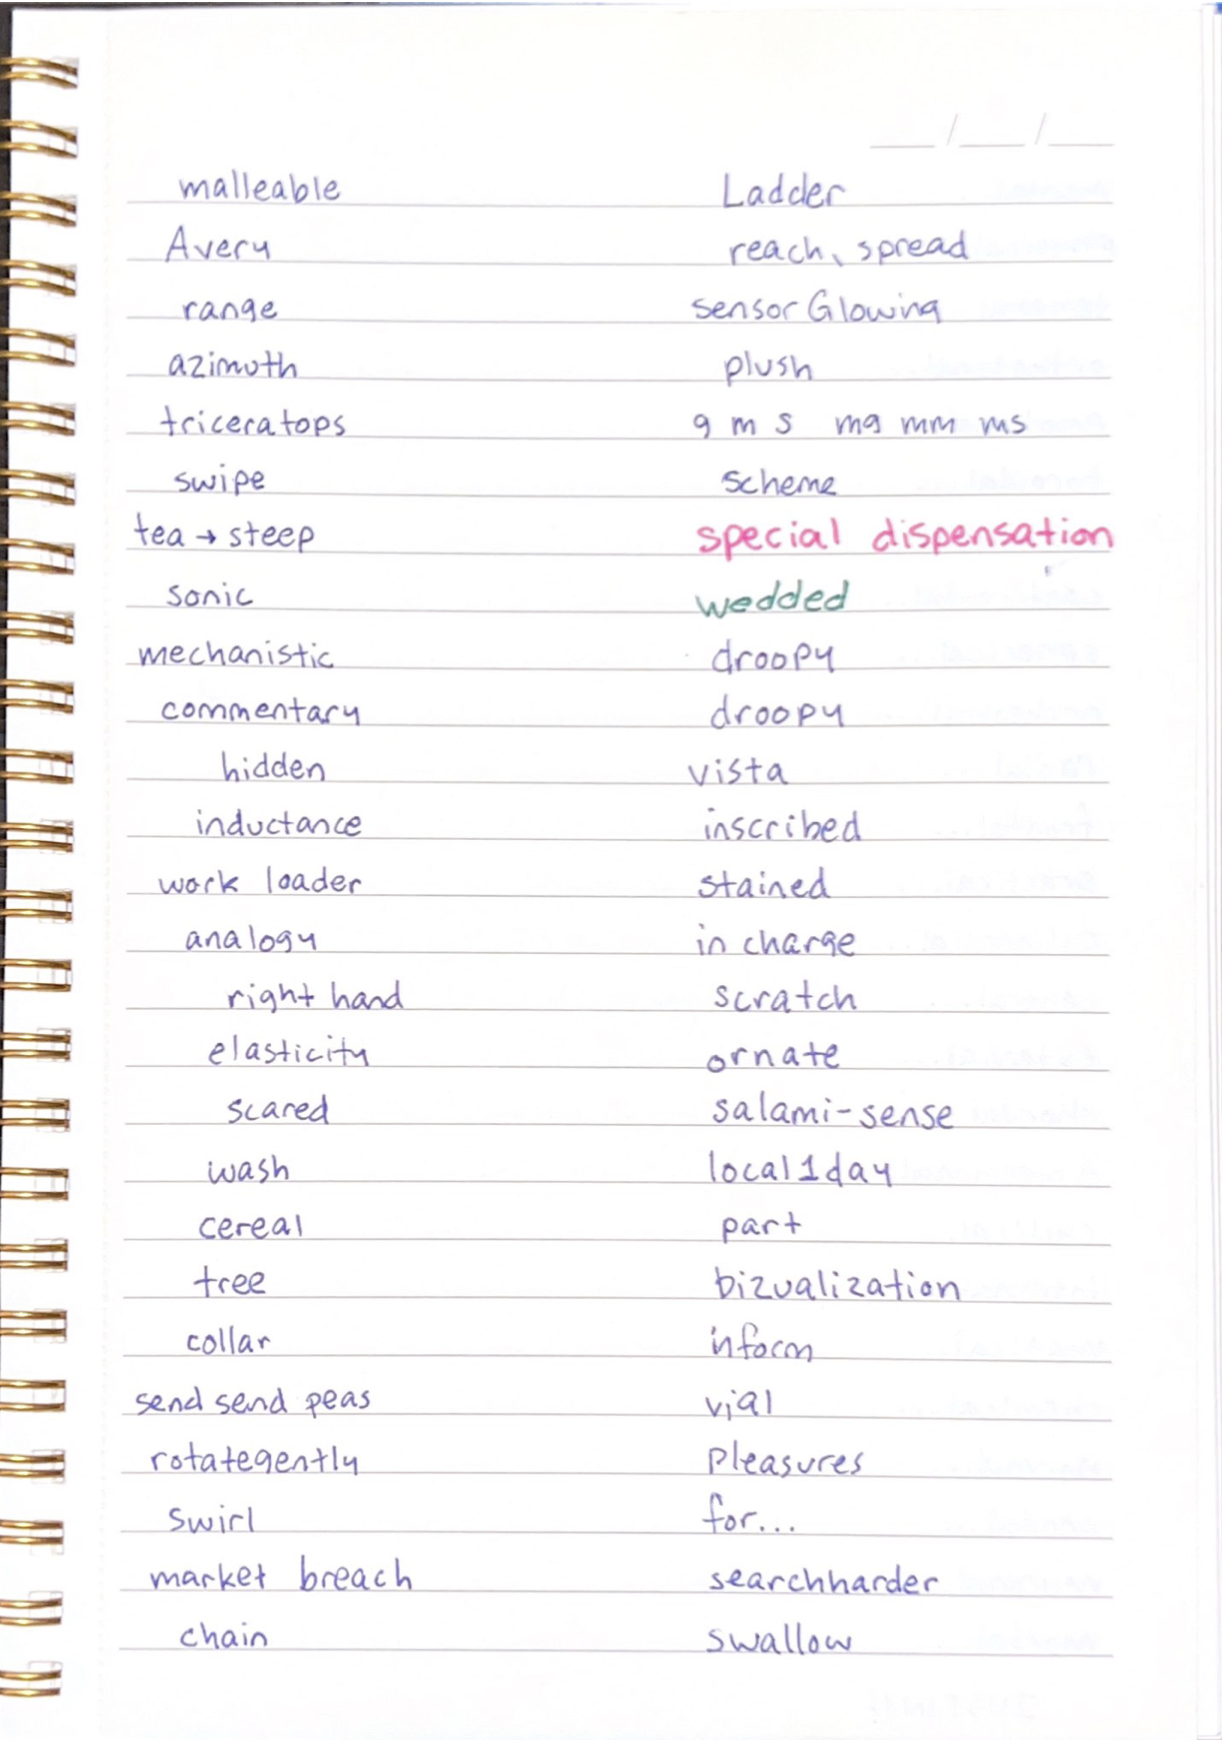 malleable
Avery
range
azimuth
triceratops
swipe
tea → steep
sonic
mechanistic
commentary
hidden
inductance
work loader
analogy
right hand
elasticity
scared
wash
cereal
tree
collar
send send peas
rotategently
swirl
market breach
chain
Ladder
reach, spread
sensor Glowing
plush
g m s mg mm ms
scheme
special dispensation
wedded
droopy
droopy
vista
inscribed
stained
in charge
scratch
ornate
salami-sense
local1day
part
bizualization
inform
vial
Pleasures
for...
searchharder
swallow